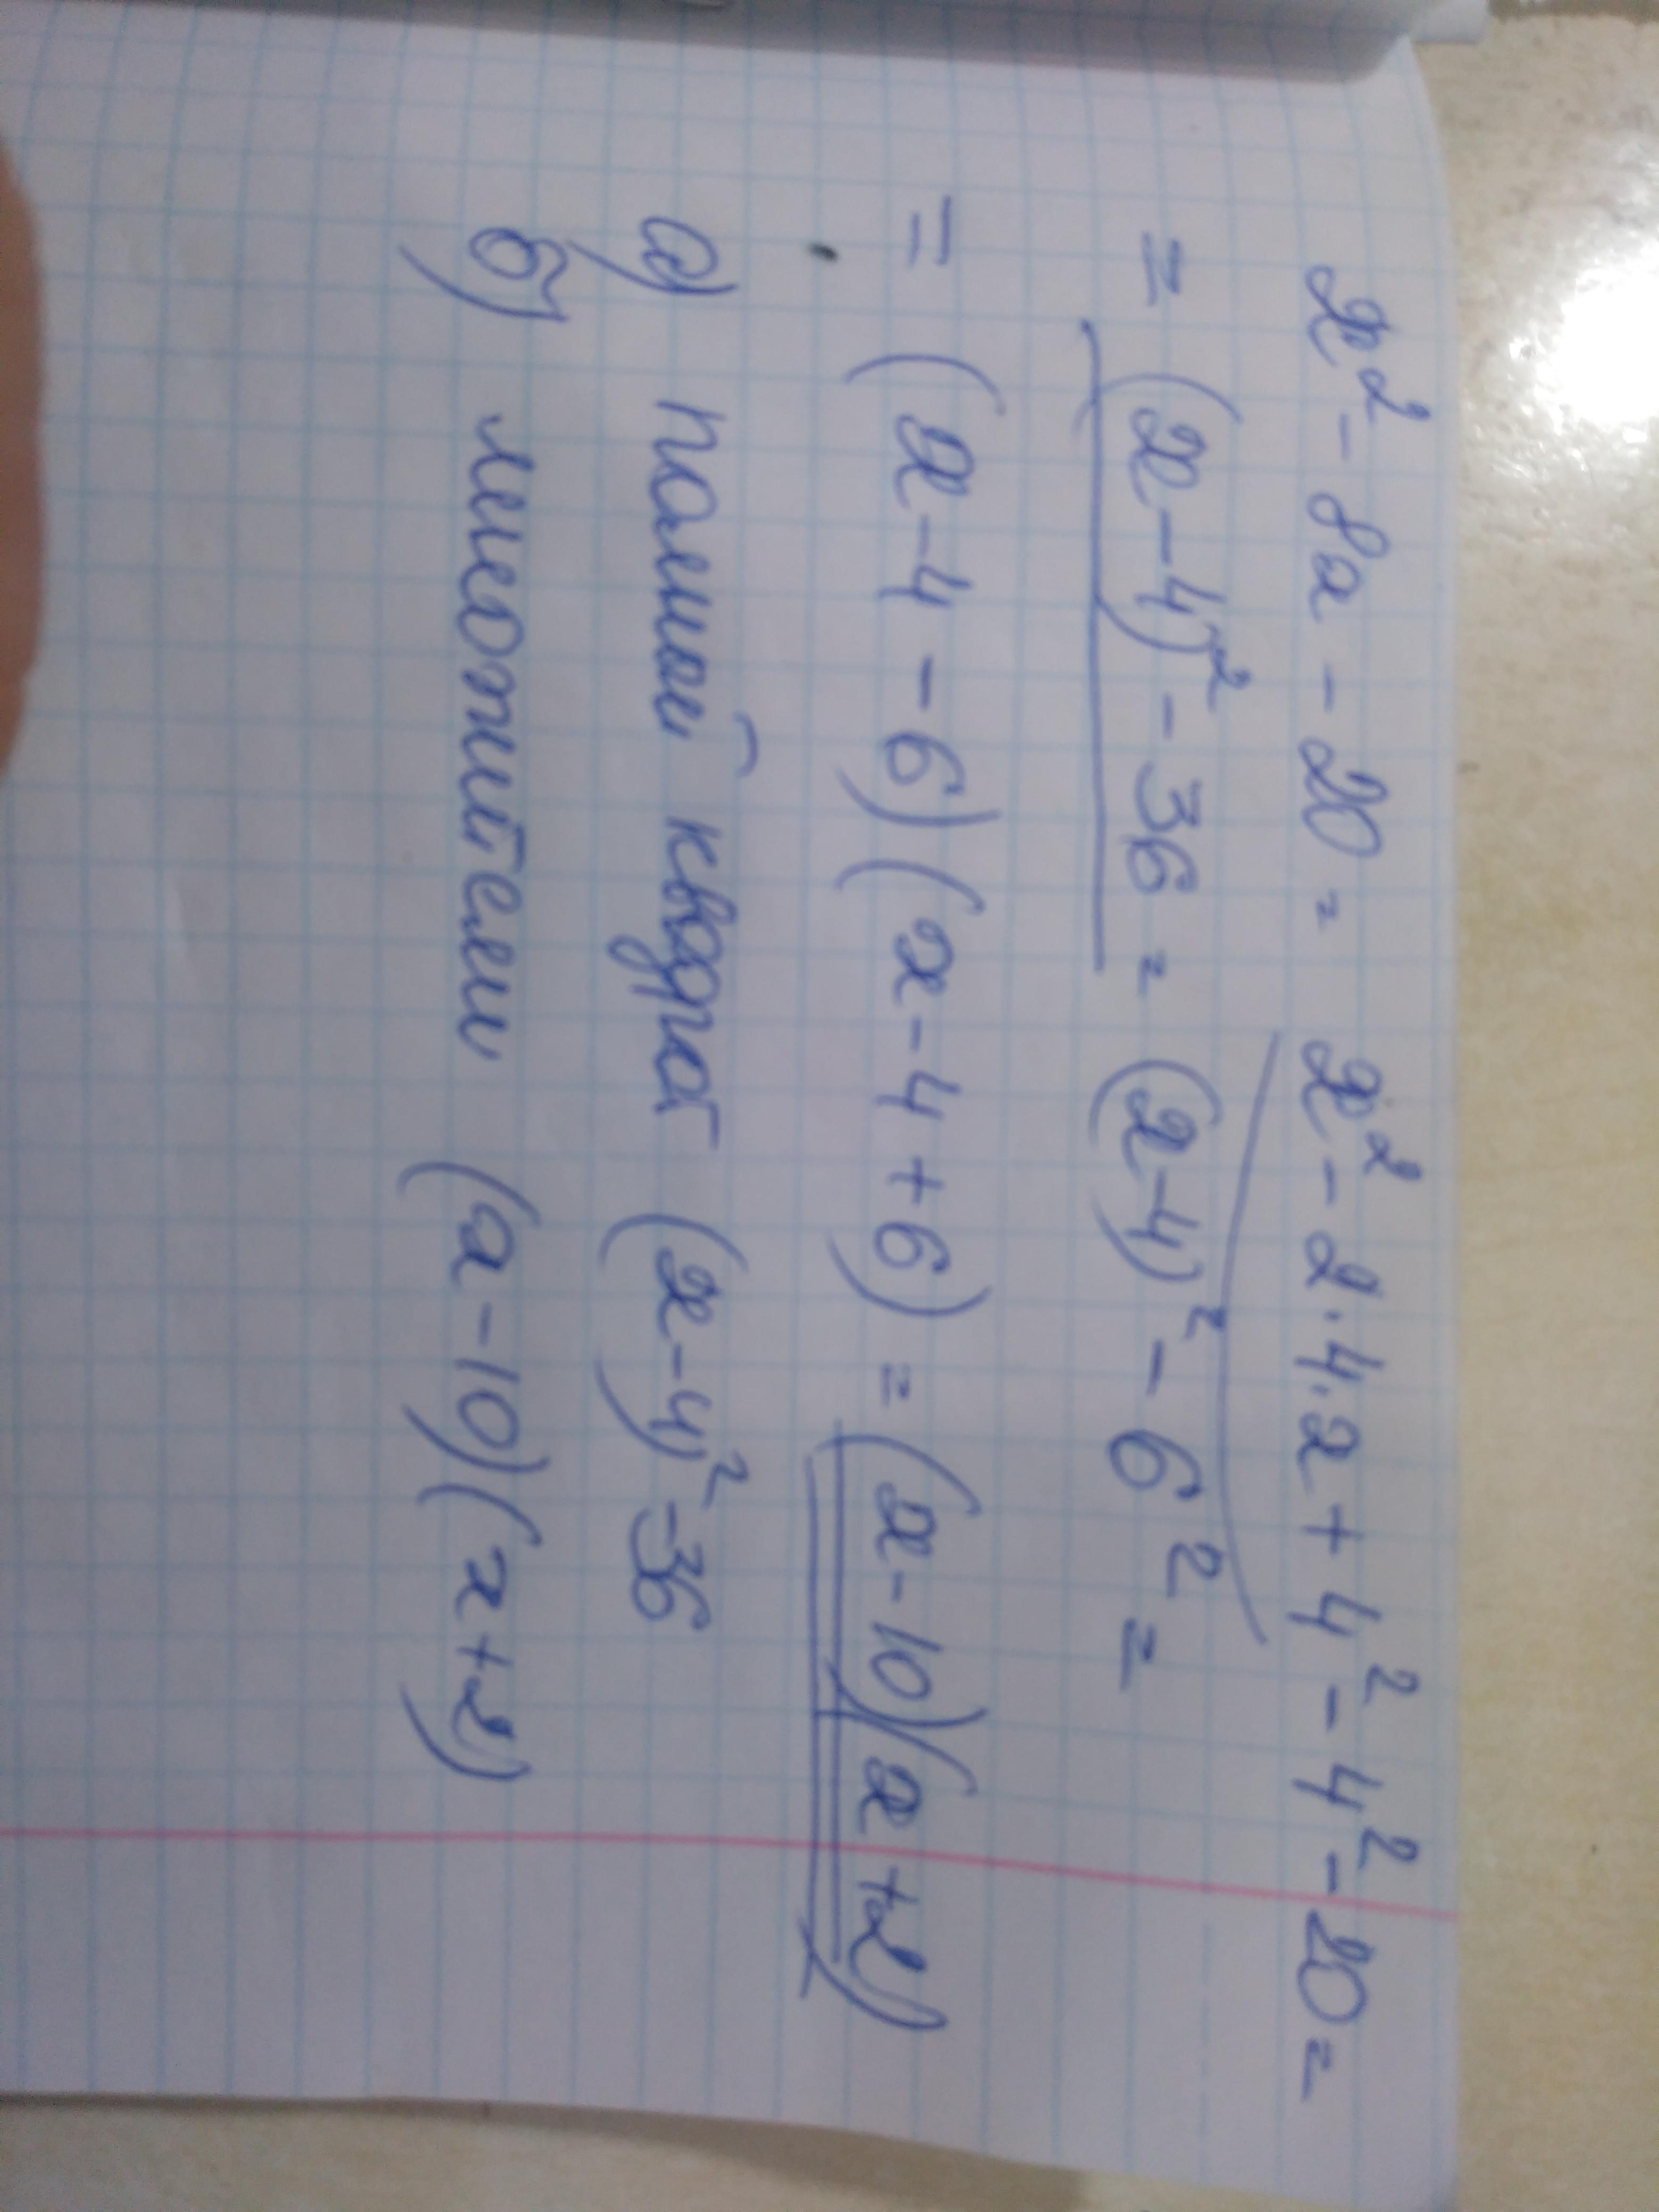 x² - 8x - 20 = x² - 2·4·x + 4² - 4² - 20 =
= (x - 4)² - 36 = (x-4)² - 6² =
= (x - 4 - 6)(x - 4 + 6) = (x - 10)(x + 2)
а) полный квадрат (x-4)² - 36
б) множители (x - 10)(x + 2)